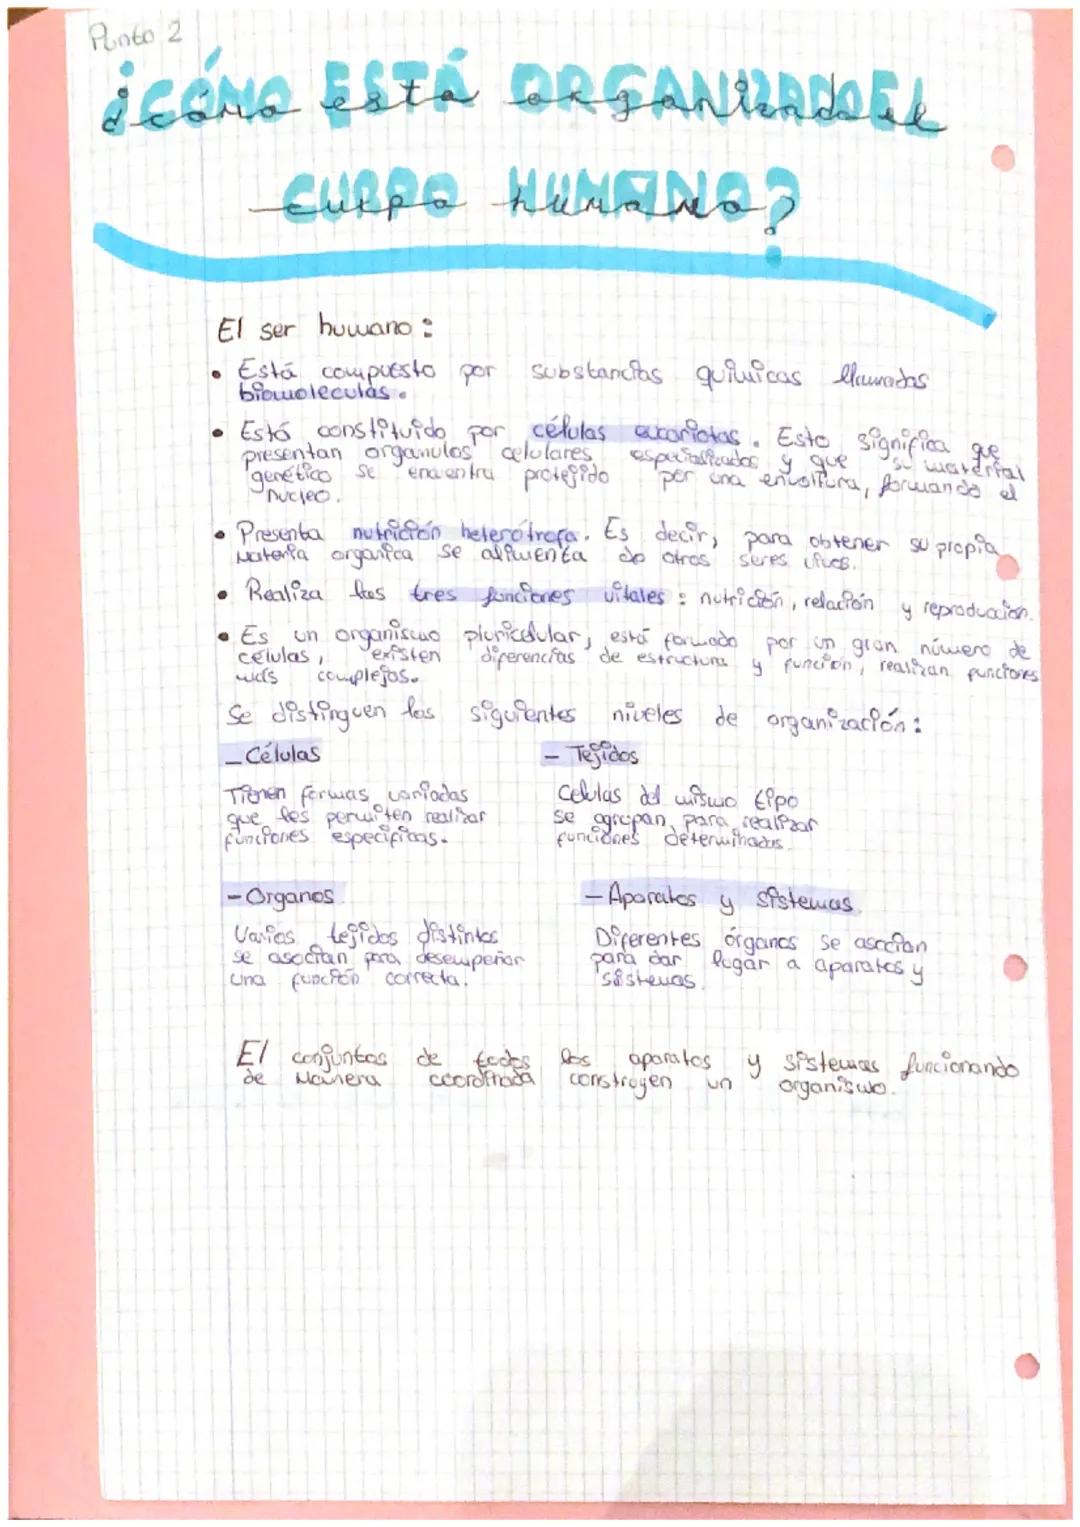 Punto 2
¿CÓMO ESTÁ ORGANIZADO EL
CUERPO HUMANO?
El ser humano:
• Está compuesto por substancias químicas llamadas
biomoleculas.
• Está constituido por células eucariotas. Esto significa que
presentan organulos celulares especializados y que su material
genético se encuentra protejido por una envoltura, formando el
nucleo.
• Presenta nutrición heterótrofa. Es decir, para obtener su propia
materia organica se alimenta de otros seres vivos.
• Realiza las tres funciones vitales: nutrición, relación y reproducción.
• Es un organismo pluricelular, está formado por un gran número de
células, existen diferencias de estructura y función, realizan funciones
más complejas.
Se distinguen los siguientes niveles de organización:
- Células
Tienen formas variadas
que les permiten realizar
funciones específicas.
- Tejidos
Celulas del mismo tipo
se agrupan para realizar
funciones determinadas.
- Organos
Varios tejidos distintos
se asocian para desempeñar
una función correcta.
- Aparatos y sistemas
Diferentes órganos se asocian
para dar lugar a aparatos y
sistemas.
El conjuntos de todos los aparatos y sistemas funcionando
de manera coordinada construyen un organismo.